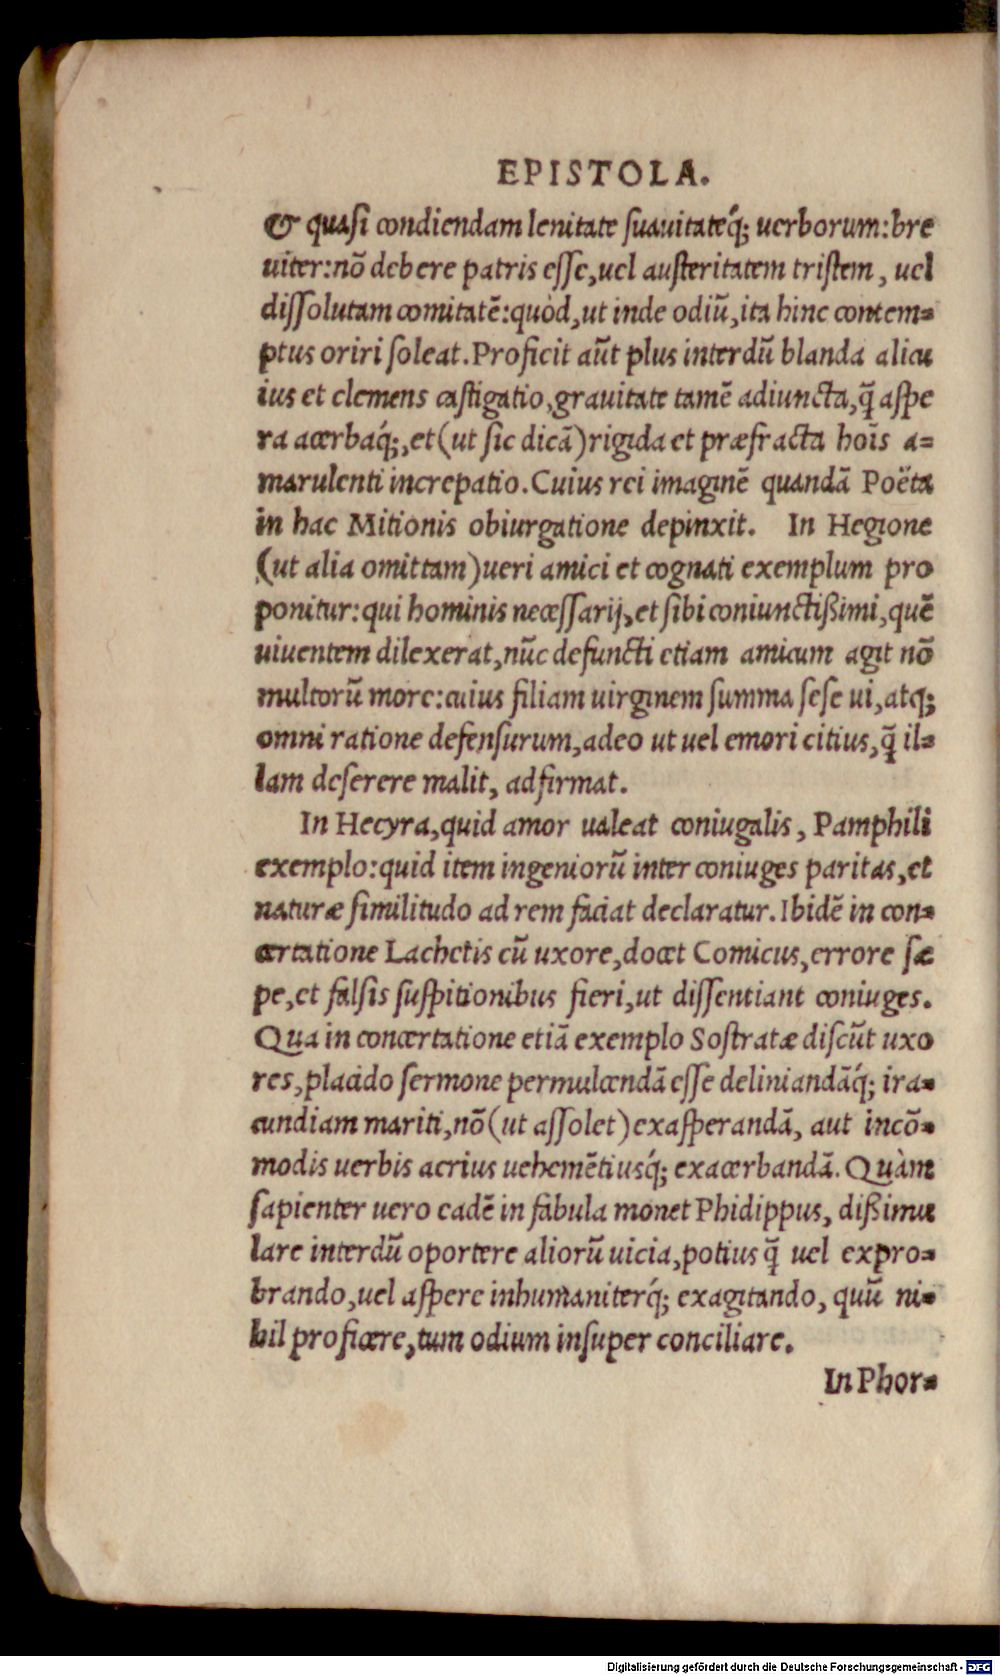 EPISTOLA.
& quasi condiendam lenitate suauitateq́; uerborum: bre
uiter: nō debere patris esse, uel austeritatem tristem, uel
dissolutam comitatē: quòd, ut inde odiū, ita hinc contem-
ptus oriri soleat. Proficit aūt plus interdū blanda alicu
ius et clemens castigatio, grauitate tamē adiuncta, q̄ aspe
ra acerbaq́;, et (ut sic dicā) rigida et præfracta hoīs a-
marulenti increpatio. Cuius rei imaginē quandā Poëta
in hac Mitionis obiurgatione depinxit. In Hegione
(ut alia omittam) ueri amici et cognati exemplum pro
ponitur: qui hominis necessarij, et sibi coniunctißimi, quē
uiuentem dilexerat, nūc defuncti etiam amicum agit nō
multorū more: cuius filiam uirginem summa sese ui, atq;
omni ratione defensurum, adeo ut uel emori citius, q̄ il-
lam deserere malit, adfirmat.
In Hecyra, quid amor ualeat coniugalis, Pamphili
exemplo: quid item ingeniorū inter coniuges paritas, et
naturæ similitudo ad rem faciat declaratur. Ibidē in con-
certatione Lachetis cū uxore, docet Comicus, errore sæ
pe, et falsis suspitionibus fieri, ut dissentiant coniuges.
Qua in concertatione etiā exemplo Sostratæ discūt uxo
res, placido sermone permulcendā esse deliniandāq́; ira-
cundiam mariti, nō (ut assolet) exasperandā, aut incō-
modis uerbis acrius uehemētiusq́; exacerbandā. Quàm
sapienter uero eadē in fabula monet Phidippus, dißimu
lare interdū oportere aliorū uicia, potius q̄ uel expro-
brando, uel aspere inhumaniterq́; exagitando, quū ni-
hil proficere, tum odium insuper conciliare.
In Phor-
Digitalisierung gefördert durch die Deutsche Forschungsgemeinschaft - DFG